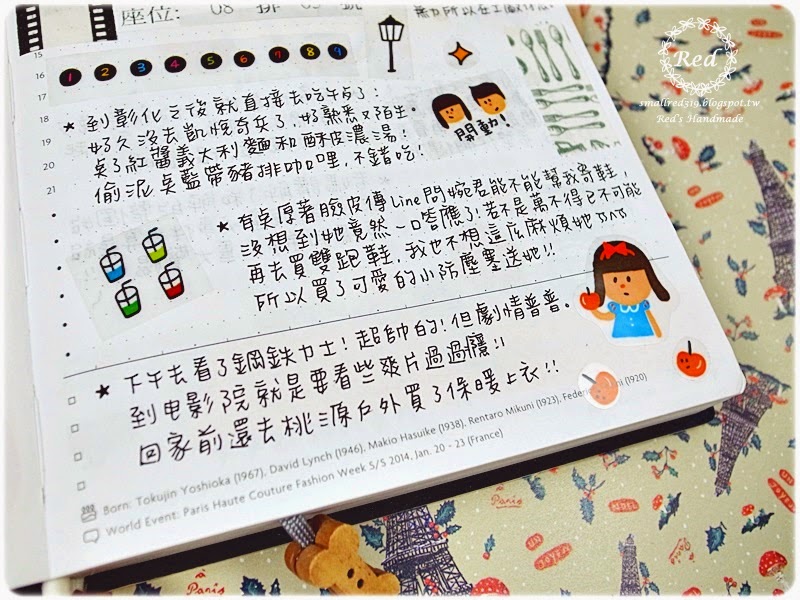 座位: 08 排 号
15
16
17
18
19
20
21
1 2 3 4 5 6 7 8 9
★ 到彰化之後就直接去吃午点了:
好久沒去凱悅奇兵了，好熟悉又陌生。
点了紅醬義大利麵和酥皮濃湯!
偷泥点藍帶豬排咖哩，不錯吃!
開動!
★ 有点厚著臉皮傳Line問婉君能不能幫我寄鞋，
沒想到她竟然一口答應了!若不是萬不得已不可能
再去買雙跑鞋，我也不想這么麻煩她
所以買了可愛的小防塵塞送她!!
★ 下午去看了鋼鉄力士! 超帥的! 但劇情普普。
到电影院就是要看些爽片過過癮!!
回家前還去桃源户外買了保暖上衣!!
Born: Tokujin Yoshioka (1967). David Lynch (1946). Makio Hasuike (1938). Rentaro Mikuni (1923). (1920)
World Event: Paris Haute Couture Fashion Week S/S 2014, Jan. 20 - 23 (France)
Red
smallred319.blogspot.tw
Red's Handmade
à Paris
à Paris
à Paris